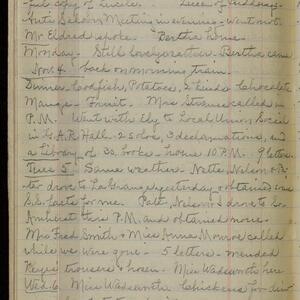 copy of
Anti Saloon Meeting in evening - went not
Mr Eldred spoke. Bertha home
Monday. Still lovely weather. Bertha came
Nov. 4 back on morning train.
Dinner. Codfish, Potatoes, 2 kinds Chocolate
Mange - Fruit. Mrs Stevens called in
P.M. Went with Ely to Local Union Social
in G.A.R. Hall. 2 solos, 3 declamations, and
a Library of 30 books. home 10 P.M. 9 letters.
Tues 5 Same weather. Nette Nelson &
drove to La Grange yesterday & obtained some
S.S. facts for me. Nelson & drove to
Amherst this P.M. and obtained more.
Mrs Fred Smith & Miss Anna Monroe called
while we were gone - 5 letters - mended
trousers & hosen. Miss Wadsworth here
Wed. 6 Miss Wadsworth Chickens for our